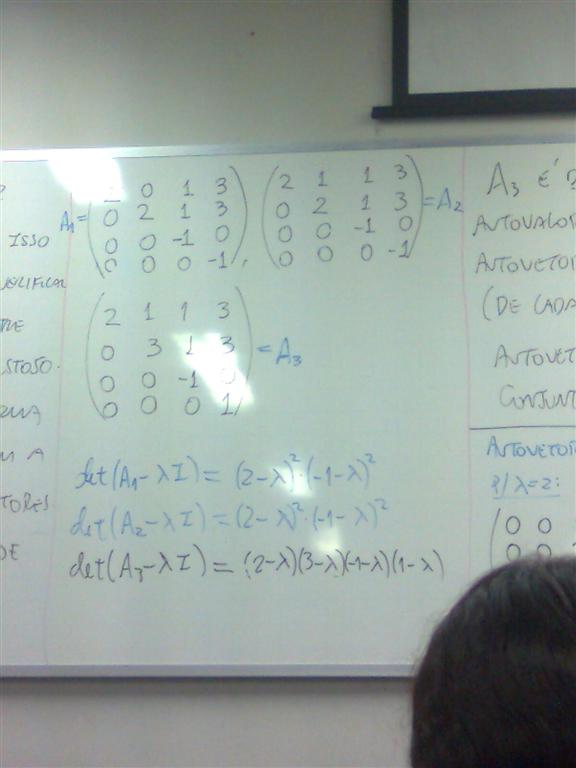 A₁ = (2 0 1 3
0 2 1 3
0 0 -1 0
0 0 0 -1),
(2 1 1 3
0 2 1 3
0 0 -1 0
0 0 0 -1) = A₂
(2 1 1 3
0 3 1 3
0 0 -1 0
0 0 0 1) = A₃
det(A₁-λI) = (2-λ)²·(-1-λ)²
det(A₂-λI) = (2-λ)²·(-1-λ)²
det(A₃-λI) = (2-λ)(3-λ)(-1-λ)(1-λ)
ISSO
DE
A₃ É D
AUTOVALO
AUTOVETO
(DE CADA
AUTOVET
CONJUNT
AUTOVETO
P/ λ=2:
(0 0
0 0